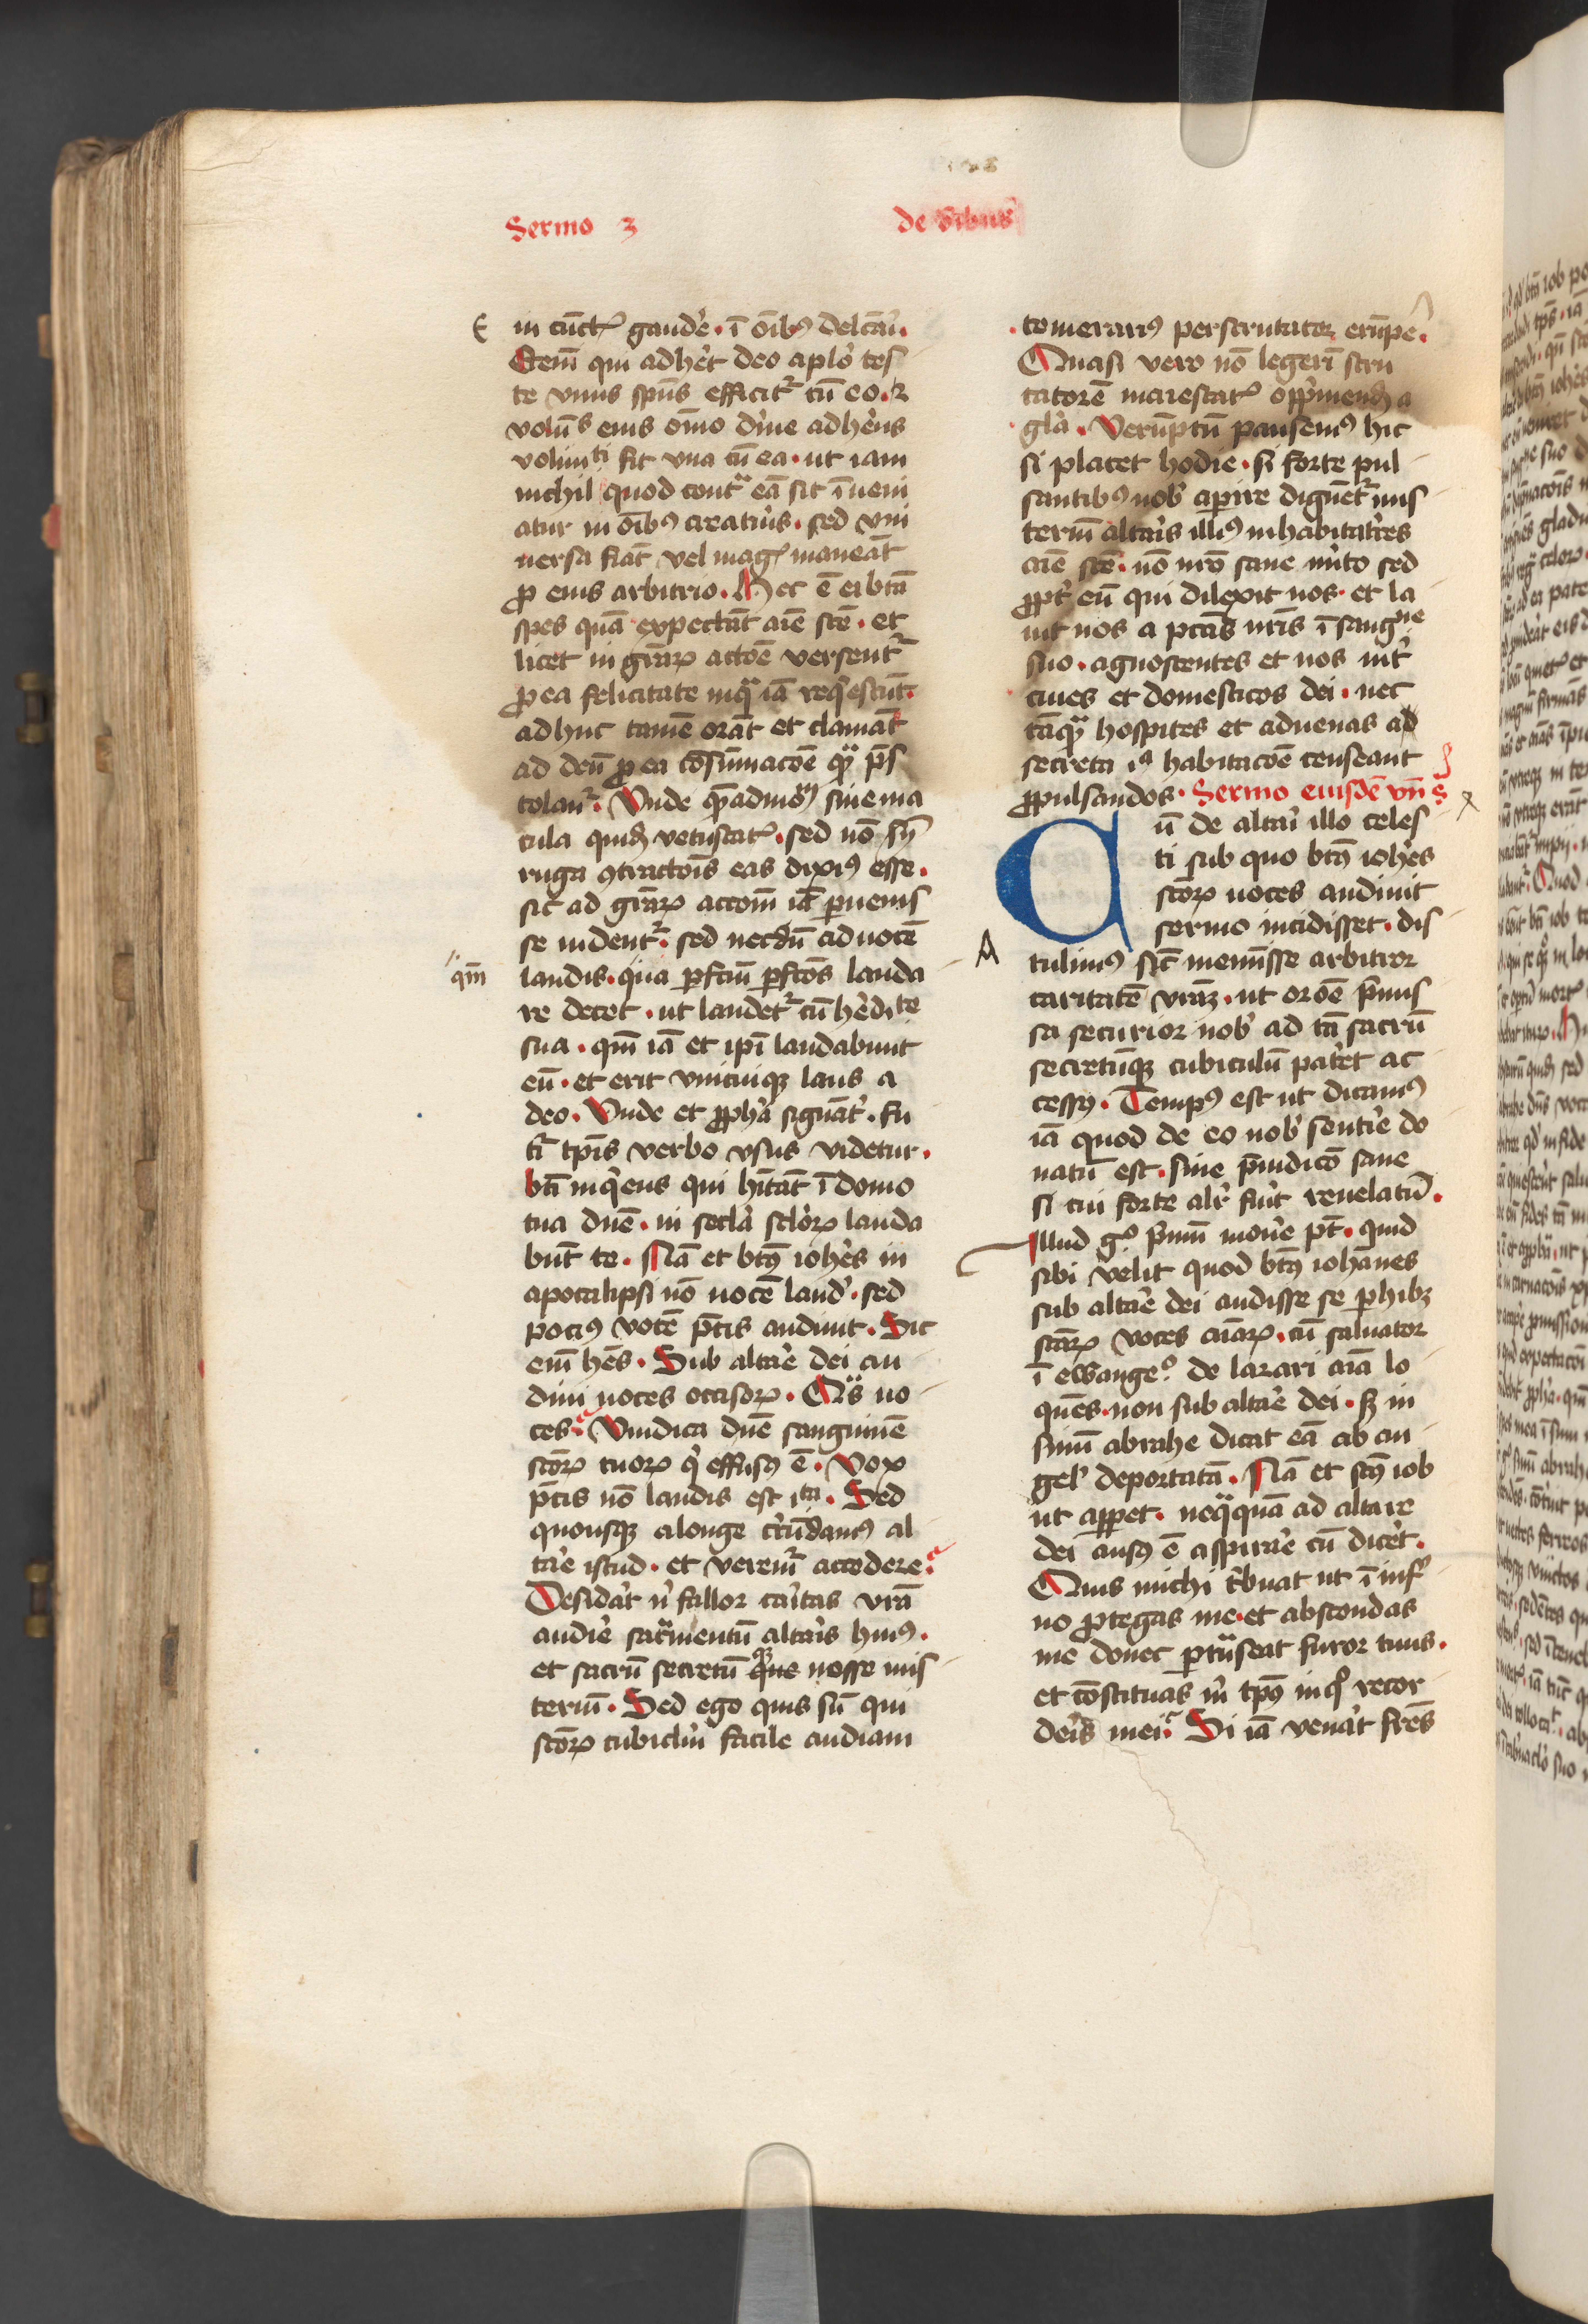 Sermo 3
de oībus
in cūctꝭ gaudēʼ · ī oībꝰ delcāʼ ·
Etenī qui adhēt deo aplo tes
te vnus spūs efficitʳ cū eo · ⁊
volūˢ eius oīno diīne adhēns
voluntⁱ fit vna cū ea · ut iam
nichil quod contᵃ eā sit īueni
atur in oībꝰ creatūʼs · sed vni
uersa fiāt vel magꝭ maneāt
ꝓ eius arbitrio · Hec ē ei btā
spes quā expectāt aīe scē · et
licet in gr̄aꝝ actōe versentʳ
ꝓ ea felicitate in qᵃ iā reqⁱescūt ·
adhuc tamē orāt et clamāt
ad deū ꝓ ea cōsūmacōe qᵃ pˢ
tolanʳ · Vnde quēadmoᵐ sine ma
cula quidē vetustatꝭ · sed nō syⁿ
ruga ꝯtractōis eas dixiꝰ esse ·
sic ad gr̄aꝝ accōm iā puenis
se uidentʳ · sed necdū ad uocē
qm̄
laudis · qua pfctū pfctōs lauda
re decet · ut laudetʳ cū hēdiᵗᵉ
sua · qm̄ iā et ipi laudabunt
eū · et erit vnicuiqꝫ laus a
deo · Vnde et ꝓphā signātʳ · fu
tⁱ tpīs verbo vsus videtur ·
btī inqⁱens qui hītāt ī domo
tua dn̄e · in secla scloꝝ lauda
būt te · Nā et btꝰ iohēs in
apocalipsi nō uocē laudʼ · sed
pociꝰ vocē pcīs audiuit · Sic
enī hēs · Sub altaʼe dei au
diui uoces occisoꝝ · Qᵃs uo
ces Vindica dn̄e sanguinē
scōꝝ tuoꝝ qⁱ effusꝰ ē · Vox
pcīs nō laudis est iᵗᵃ · Sed
quousqꝫ alonge cⁱcūdamꝰ al
taʼe istud · et veremʳ accedere
Desidāt nⁱ fallor caʼitas vrā
audiēʼ sacᵃmentū altaʼis huiꝰ ·
et sacrū secretū qⁱne nosse mis
teriū · Sed ego quis sū qui
scōꝝ cubiclm̄ facile audiam
· temerariꝰ perscrutator erūpē ·
Quasi vero nō legerī scru
tatorē maiestatꝭ oppⁱmendū a
glā · Verūptū pausemꝰ hic
si placet hodie · si forte pul
santibꝰ nobʼ apire dignetʳ mis
teriū altaʼis illiꝰ inhabitatʼres
aīe scē · nō nrō sane mʼito sed
ꝓpt eū qui dilexit nos · et la
uit nos a pctīs nrīs ī sangⁱⁿᵉ
suo · agnoscentes et nos intʼ
ciues et domesticos dei · nec
tāqᵃ hospites et aduenas ad
secreta iᵃ habitacōe censeant
ꝓpulsandos · Sermo eiusdē vn̄ s
Cū de altaʼi illo celes
ti sub quo btꝰ iohēs
scōꝝ uoces audiuit
sermo incidisset · dis
A
tulimꝰ sic meminisse arbitror
caritatē vrāꝫ · ut orōe pmis
sa securior nobʼ ad tā sacrū
secretūqꝫ cubiculū patēt ac
cessꝰ · Tempꝰ est ut dicamꝰ
iā quod de eo nobʼ sentīʼe do
natū est · sine pⁱudicō sane
si cui forte alʼr fuʼit reuelatū ·
Illud gº pⁱmū mouēʼe pt · quid
sibi velit quod btꝰ iohānes
sub altaʼe dei audisse se phibꝫ
scāꝝ voces aīaꝝ · cū saluator
ī ewangeº · de lazari aīa lo
quēs · non sub altaʼe dei · sꝫ in
sinū abrahe dicat eā ab an
gelʼ deportatā · Nā et scꝰ iob
ut appet · neqᵃquā ad altare
dei ausꝰ ē aspiraʼe cū dicēt ·
Quis michi tⁱbuat ut ī inf
no ꝓtegas me · et abscondas
me donec ptᵃnseat furor tuus ·
et cōstituas mⁱ tpꝰ in qº recor
deʼis mei Si iā venāt frēs